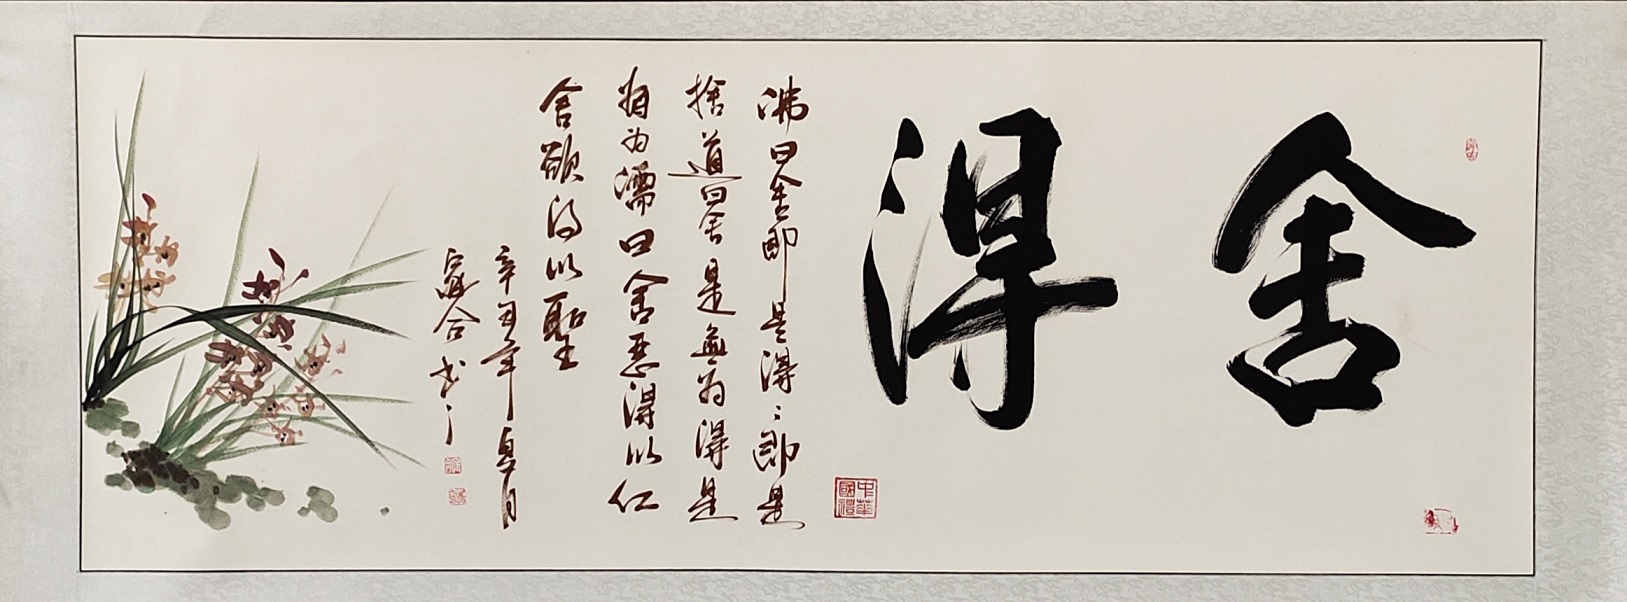 舍得
佛曰舍即是得得即是
捨道曰舍是無為得是
有為儒曰舍惡得以仁
舍欲得以聖
辛丑年夏月
合书
中華國禮